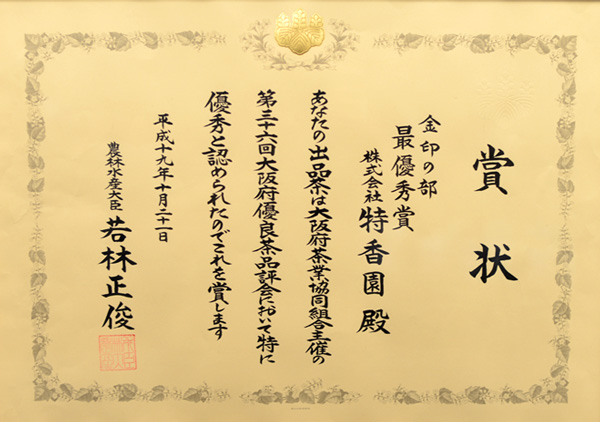 賞状
金印の部
最優秀賞
株式会社 特香園 殿
あなたの出品茶は大阪府茶業協同組合主催の
第三十六回大阪府優良茶品評会において特に
優秀と認められたのでこれを賞します
平成十九年十月二十一日
農林水産大臣 若林正俊